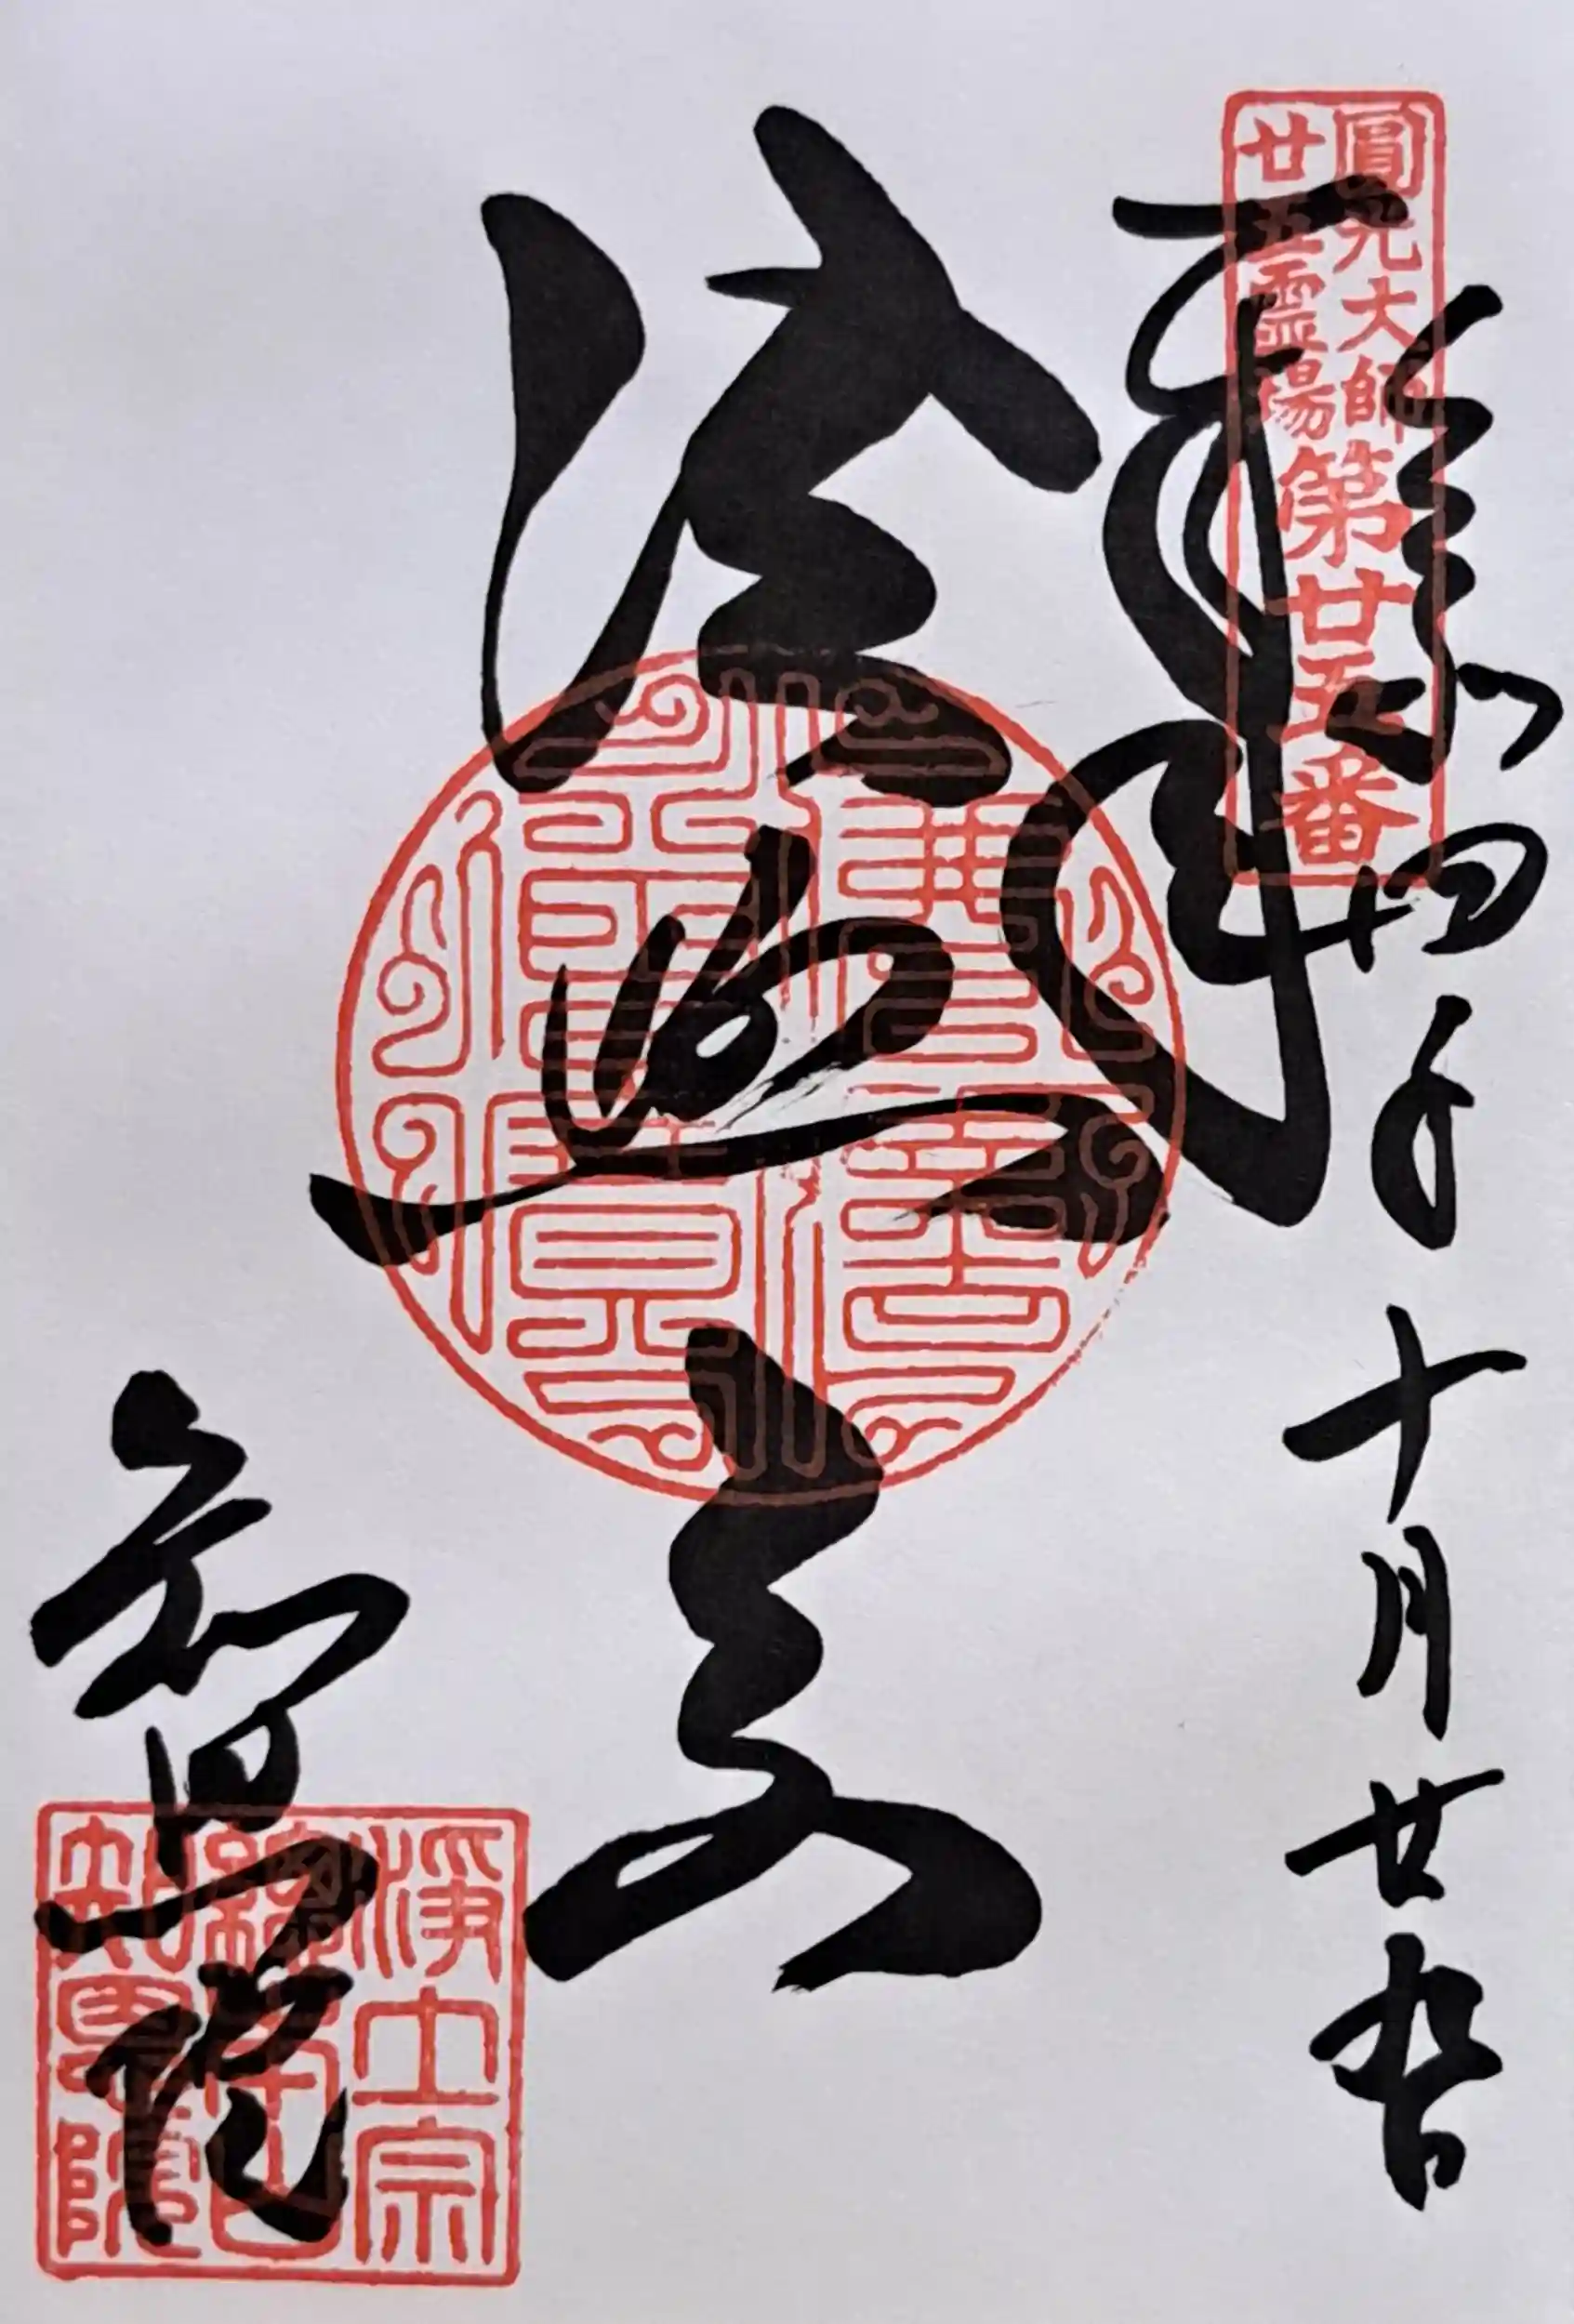 圓光大師
廿五霊場
第廿五番
奉拝
令和四年十月廿九日
法然上人
知恩院
浄土宗
總本山
知恩院